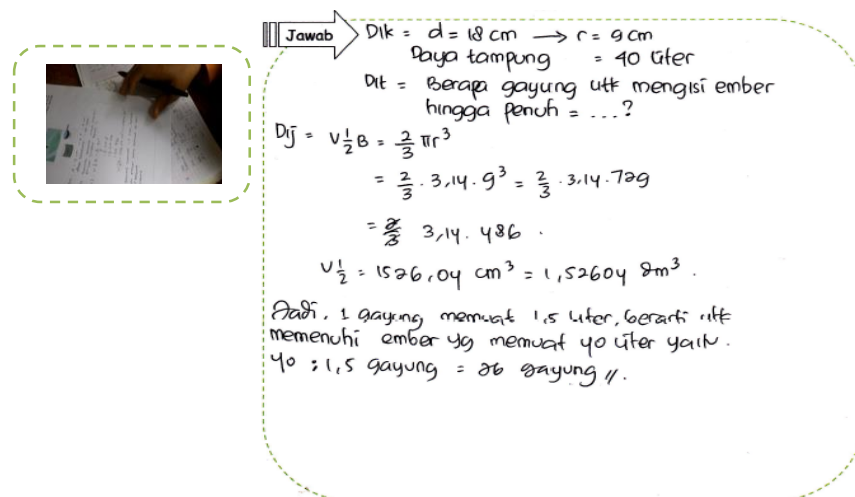 Jawab
Dik = d = 18 cm → r = 9 cm
Daya tampung = 40 liter
Dit = Berapa gayung utk mengisi ember
hingga penuh = ....?
Dij = V½B = 2/3 πr³
= 2/3 . 3,14 . 9³ = 2/3 . 3,14 . 729
= 2/3 3,14 . 486 .
V½ = 1526,04 cm³ = 1,52604 dm³ .
Jadi, 1 gayung memuat 1,5 liter, berarti utk
memenuhi ember yg memuat 40 liter yaitu .
40 : 1,5 gayung = 26 gayung //.